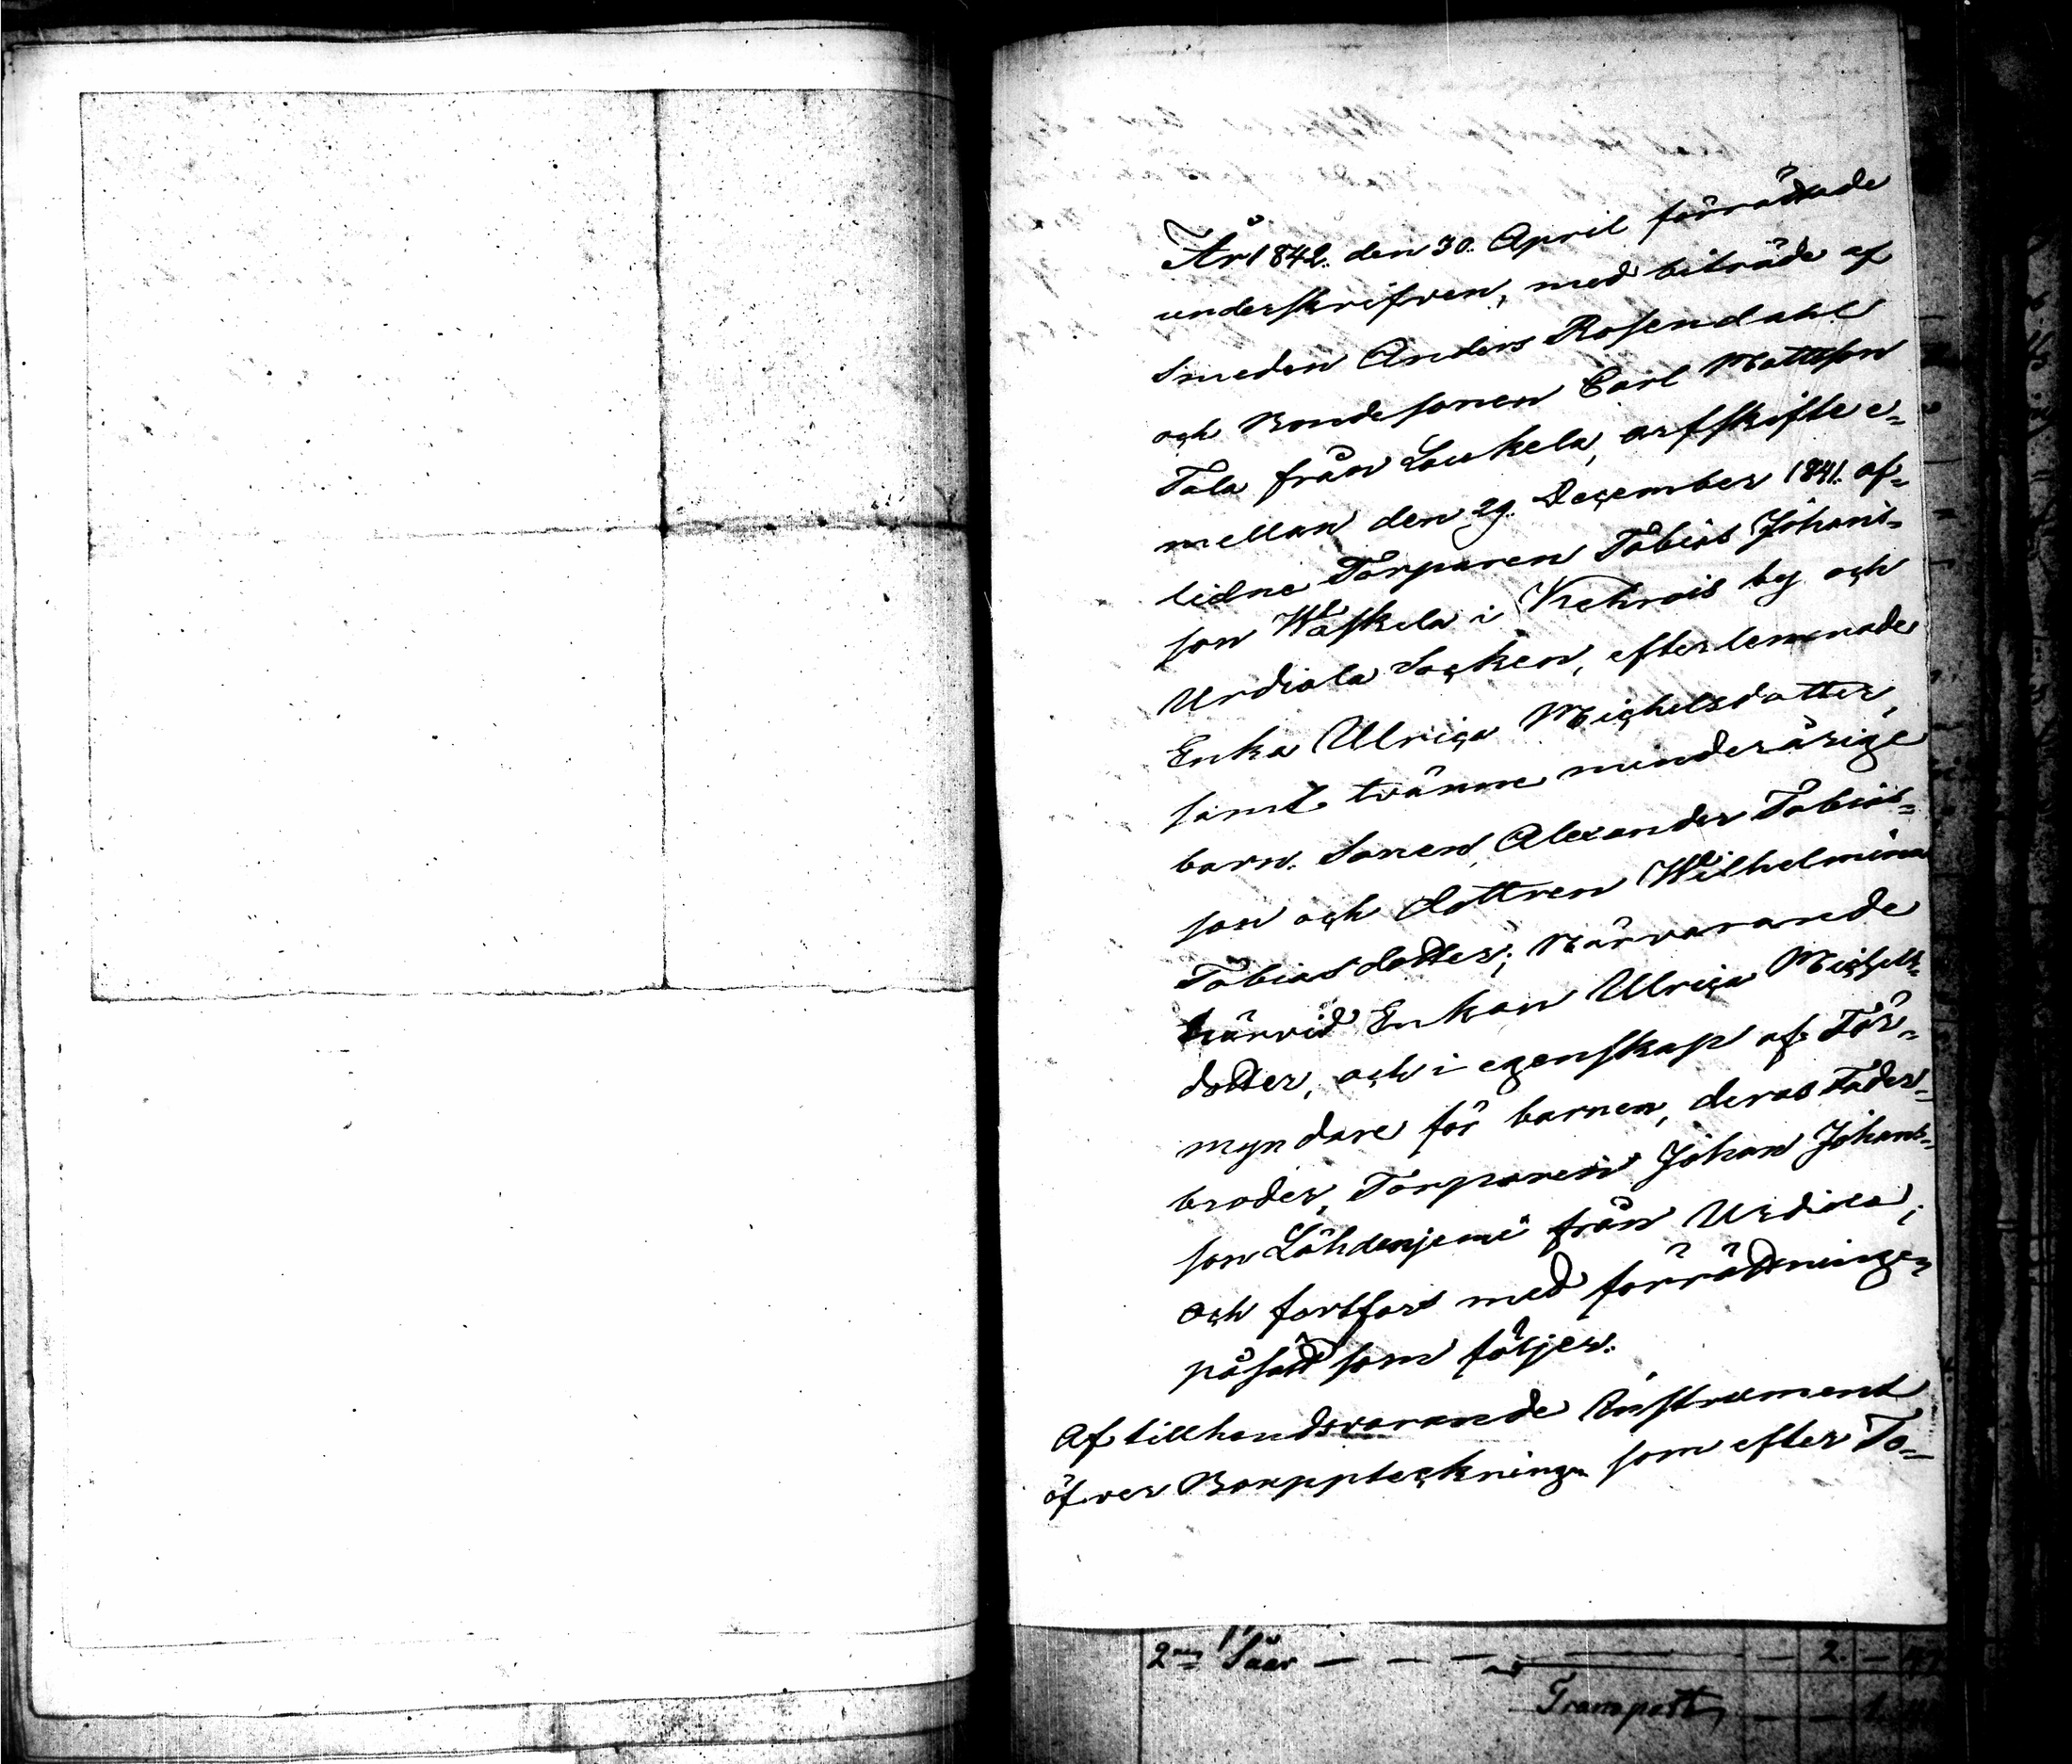 År 1842. den 30. April förrättade
underskrifven, med biträde af
Smeden Anders Rosendahl
och Bondesonen Carl Mattsson
Tala från Laukela, arfskifte e-
mellan den 29. December 1841. af-
lidne Torparen Tobias Johans-
son Waskela i Kehrois by och
Urdiala Socken, efterlemnade
Enka Ulrica Michelsdotter,
samt tvänne minderårige
barn. Sonen Alexander Tobias-
son och dottren Wilhelmina
Tobiasdotter; Närvarande
härvid Enkan Ulrica Michels-
dotter, och i egenskap af För-
myndare för barnen, deras Fader-
broder, Torparen Johan Johans-
son Lähdenjemi från Urdiala;
och fortfors med förrättningen
påsätt som följer.
Af tillhandsvarande Instrument
öfver Bouppteckningen som efter To-
2ne Såar — — — — 2. —
Transport